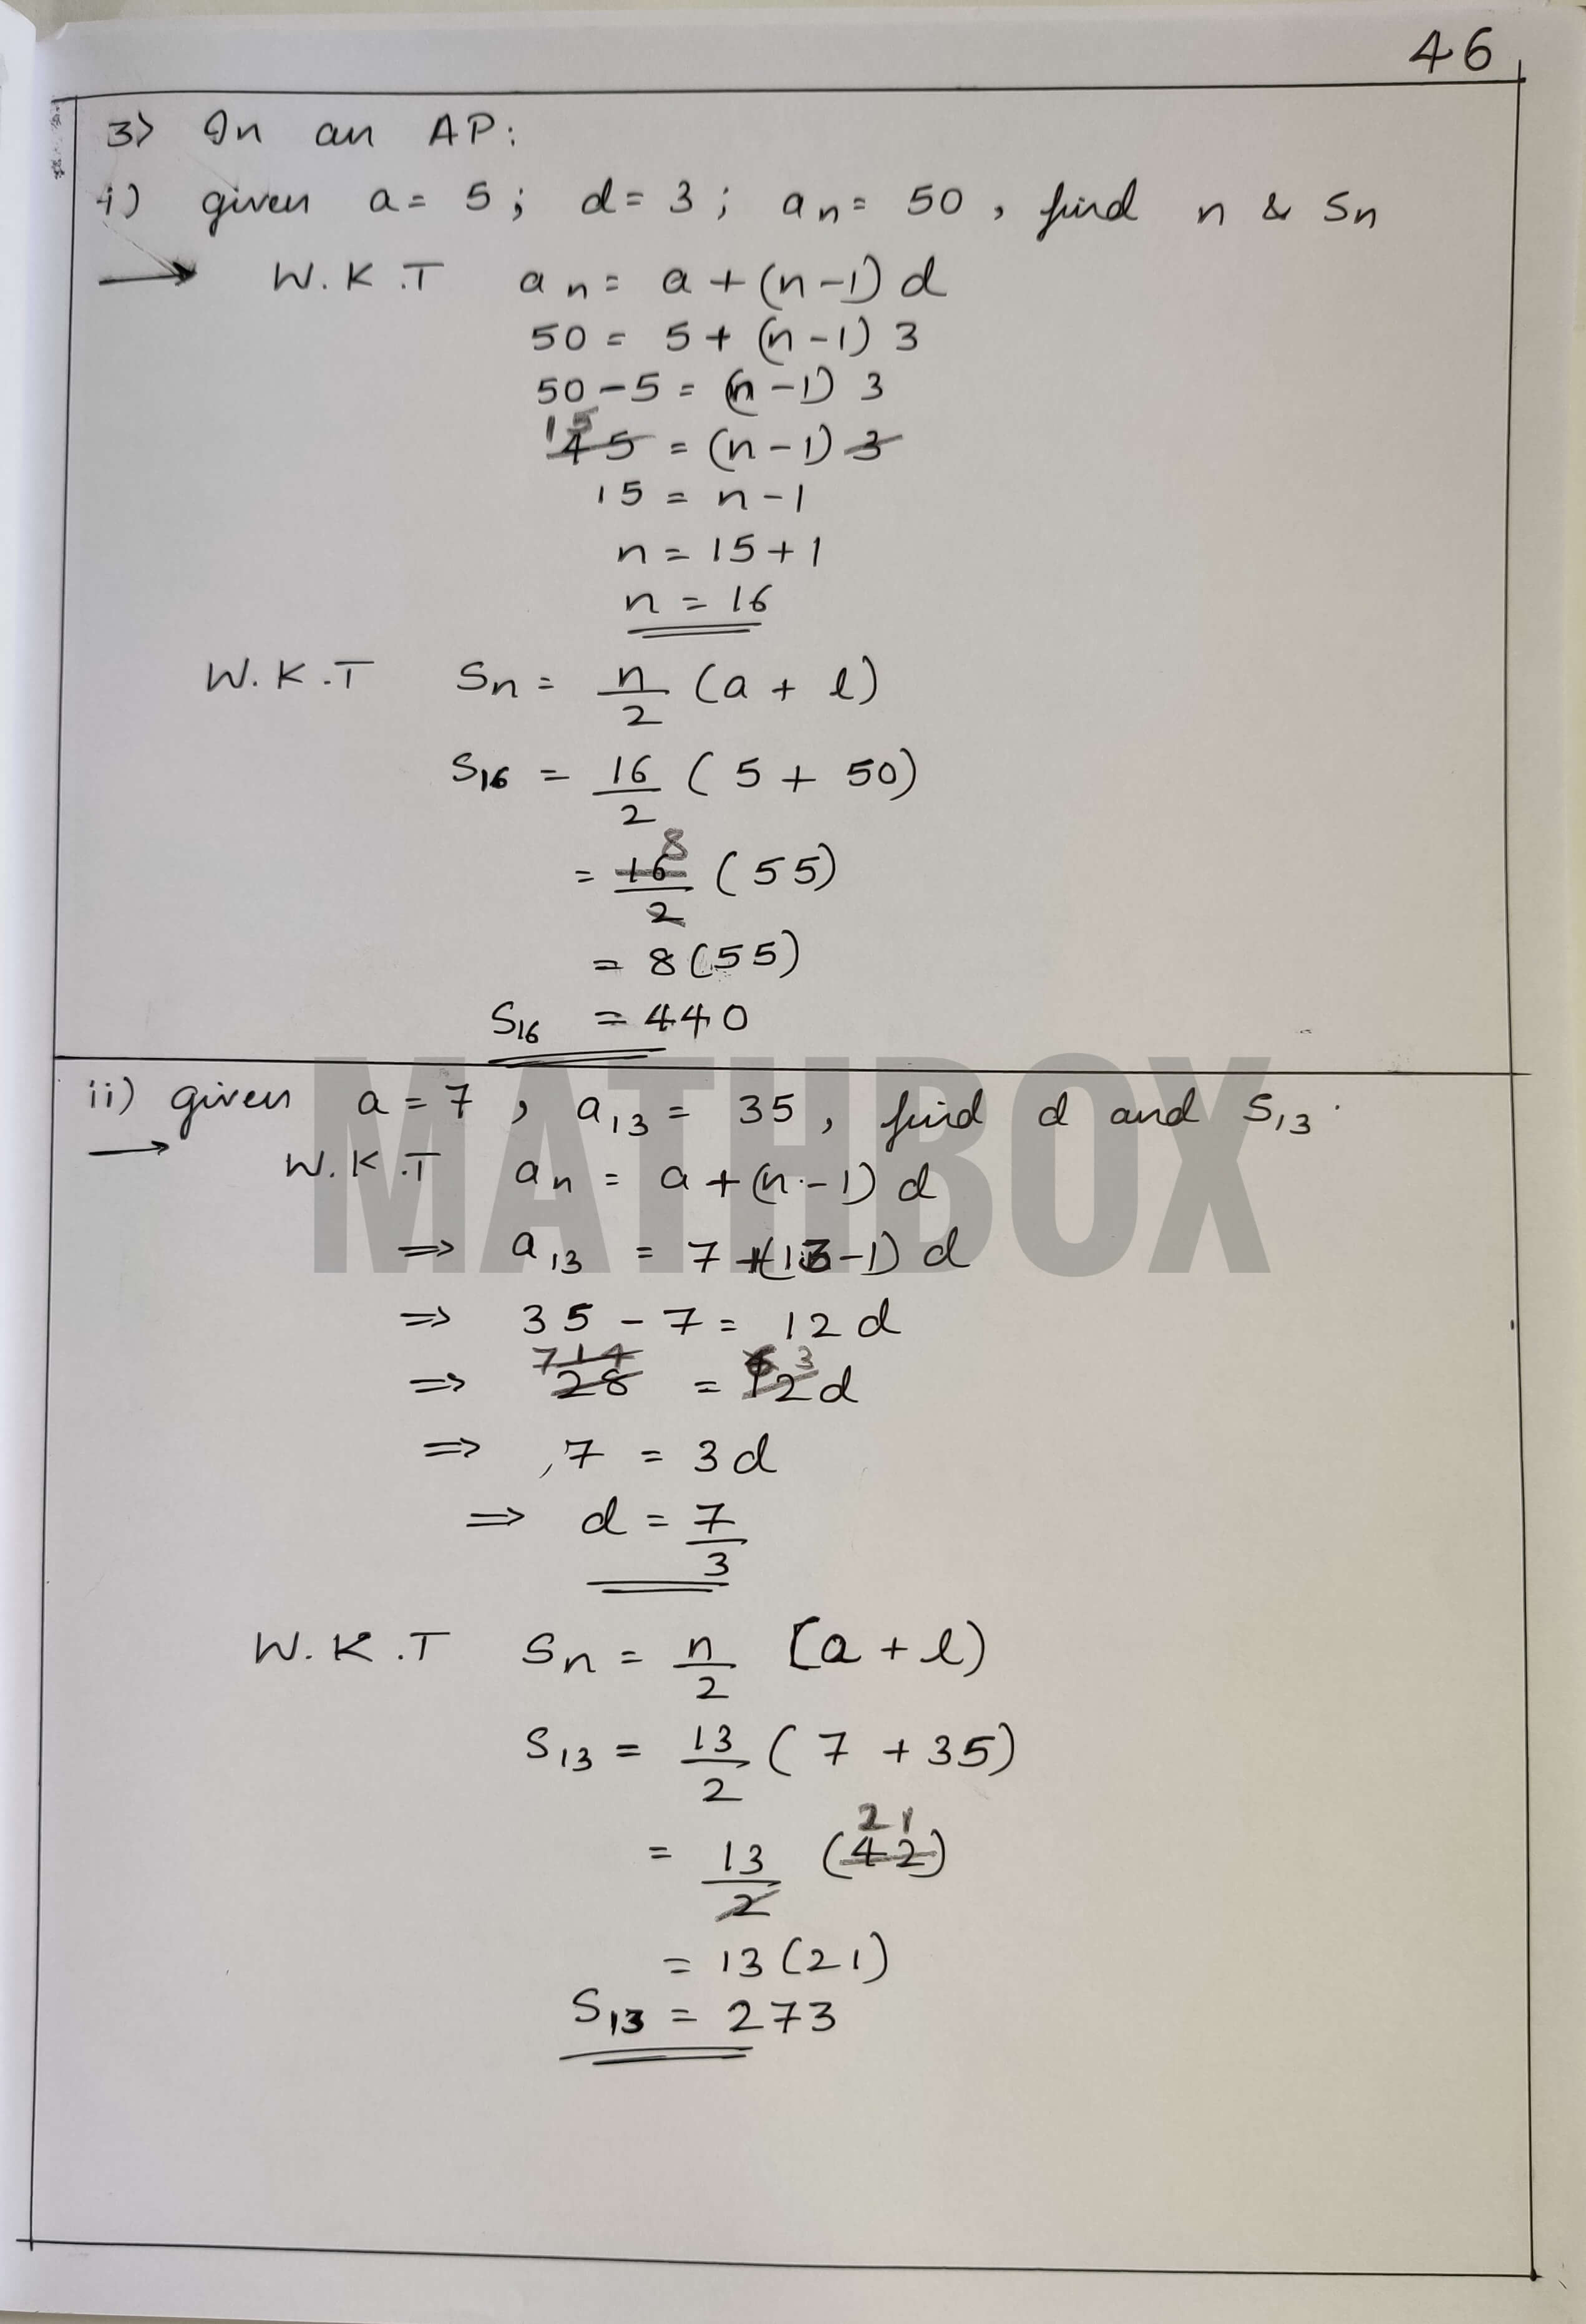 46
3) In an AP:
i) given a = 5 ; d = 3 ; aₙ = 50 , find n & Sₙ
→ W.K.T aₙ = a + (n-1) d
50 = 5 + (n-1) 3
50 - 5 = (n-1) 3
15
45 = (n-1) 3
15 = n-1
n = 15+1
n = 16
W.K.T Sₙ = n/2 (a + l)
S₁₆ = 16/2 ( 5 + 50)
8
= 16/2 (55)
= 8 (55)
S₁₆ = 440
MATHBOX
ii) given a = 7 , a₁₃ = 35 , find d and S₁₃.
→ W.K.T aₙ = a + (n-1) d
⇒ a₁₃ = 7 + (13-1) d
⇒ 35 - 7 = 12 d
7 14 6 3
⇒ 28 = 12 d
⇒ 7 = 3 d
⇒ d = 7/3
W.K.T Sₙ = n/2 [a + l)
S₁₃ = 13/2 ( 7 + 35)
21
= 13/2 (42)
= 13 (21)
S₁₃ = 273